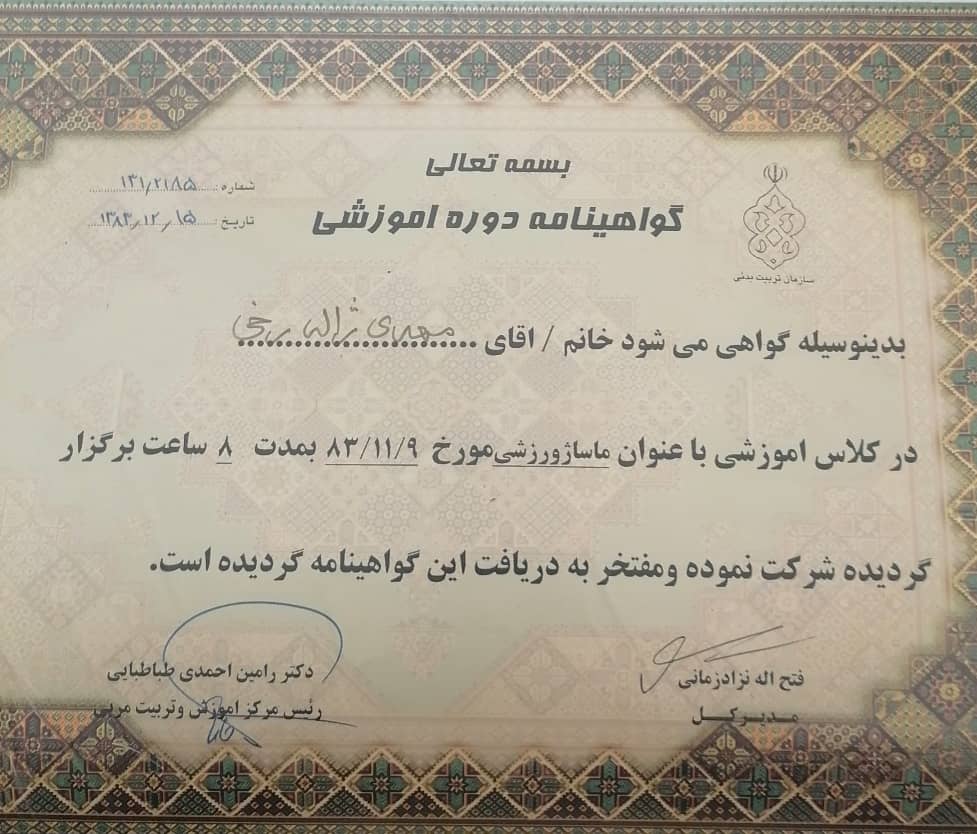 بسمه تعالی
گواهینامه دوره اموزشی
شماره : ۱۳۱/۲۱۸۵
تاریخ : ۱۳۸۳/۱۲/۱۵
سازمان تربیت بدنی
بدینوسیله گواهی می شود خانم / اقای مهدی ژاله رخی
در کلاس اموزشی با عنوان ماساژورزشی مورخ ۸۳/۱۱/۹ بمدت ۸ ساعت برگزار
گردیده شرکت نموده ومفتخر به دریافت این گواهینامه گردیده است.
فتح اله نژادزمانی
مدیرکل
دکتر رامین احمدی طباطبایی
رئیس مرکز اموزش وتربیت مربی